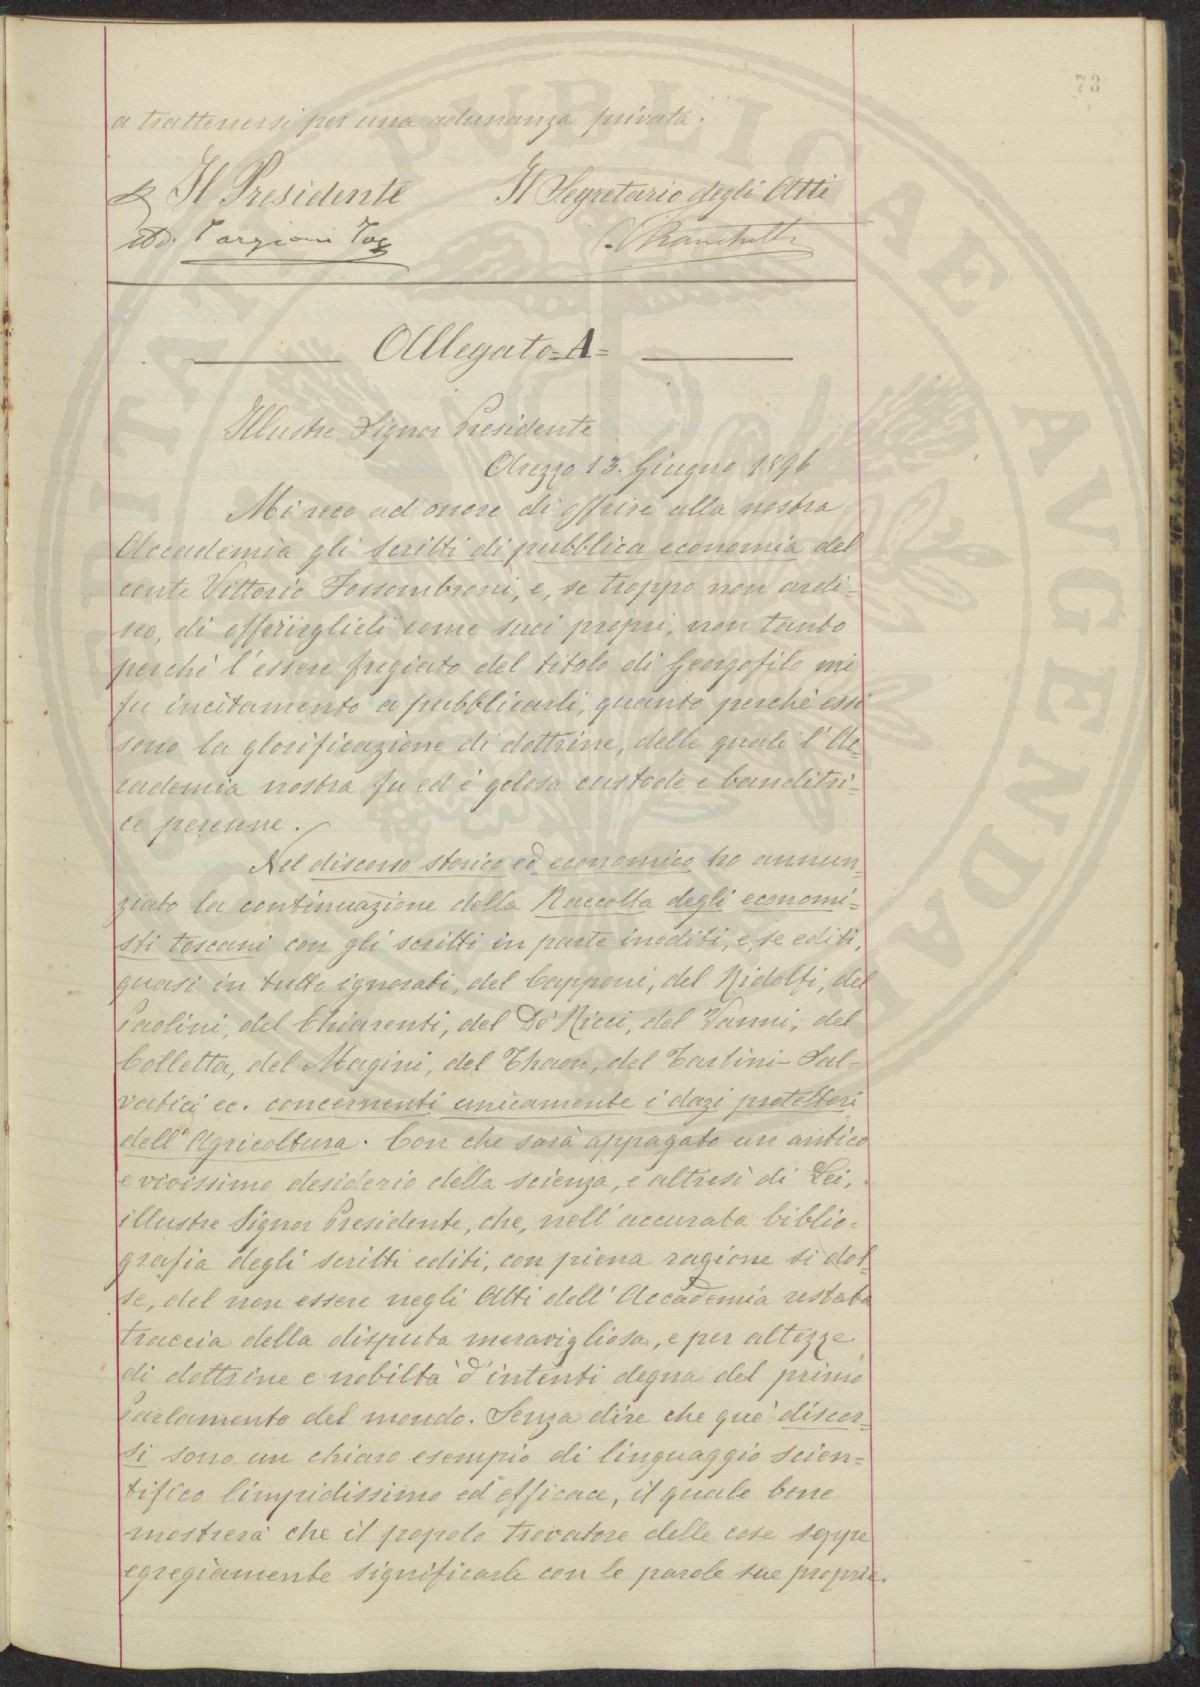 73
a trattenersi per una adunanza privata.
Il Presidente Il Segretario degli Atti
Ad. Targioni Toz
Allegato=A=
Illustre Signor Presidente
Arezzo 13. Giugno 1896
Mi reco ad onore di offrire alla nostra
Accademia gli scritti di pubblica economia del
conte Vittorio Fossombroni, e, se troppo non ardi=
sco, di offrirglieli come suoi propri, non tanto
perchè l'essere fregiato del titolo di Georgofilo mi
fu incitamento a pubblicarli, quanto perchè essi
sono la glorificazione di dottrine, delle quali l'Ac=
cademia nostra fu ed è gelosa custode e banditri=
ce perenne.
Nel discorso storico ed economico ho annun=
ziato la continuazione della Raccolta degli economi=
sti toscani con gli scritti in parte inediti, e, se editi,
quasi in tutto ignorati, del Capponi, del Ridolfi, del
Paolini, del Chiarenti, del De' Ricci, del Vanni, del
Colletta, del Magini, del Thaon, del Tartini-Sal=
vatici ec. concernenti unicamente i dazi protettori
dell'Agricoltura. Con che sarà appagato un antico
e vivissimo desiderio della scienza, e altresì di Lei,
illustre Signor Presidente, che, nell'accurata biblio=
grafia degli scritti editi, con piena ragione si dol=
se, del non essere negli Atti dell'Accademia restata
traccia della disputa meravigliosa, e per altezze
di dottrine e nobiltà d'intenti degna del primo
Parlamento del mondo. Senza dire che que' discor=
si sono un chiaro esempio di linguaggio scien=
tifico limpidissimo ed efficace, il quale bene
mostrerà che il popolo trovatore delle cose seppe
egregiamente significarle con le parole sue proprie.
PUBLICAE AUGENDAE